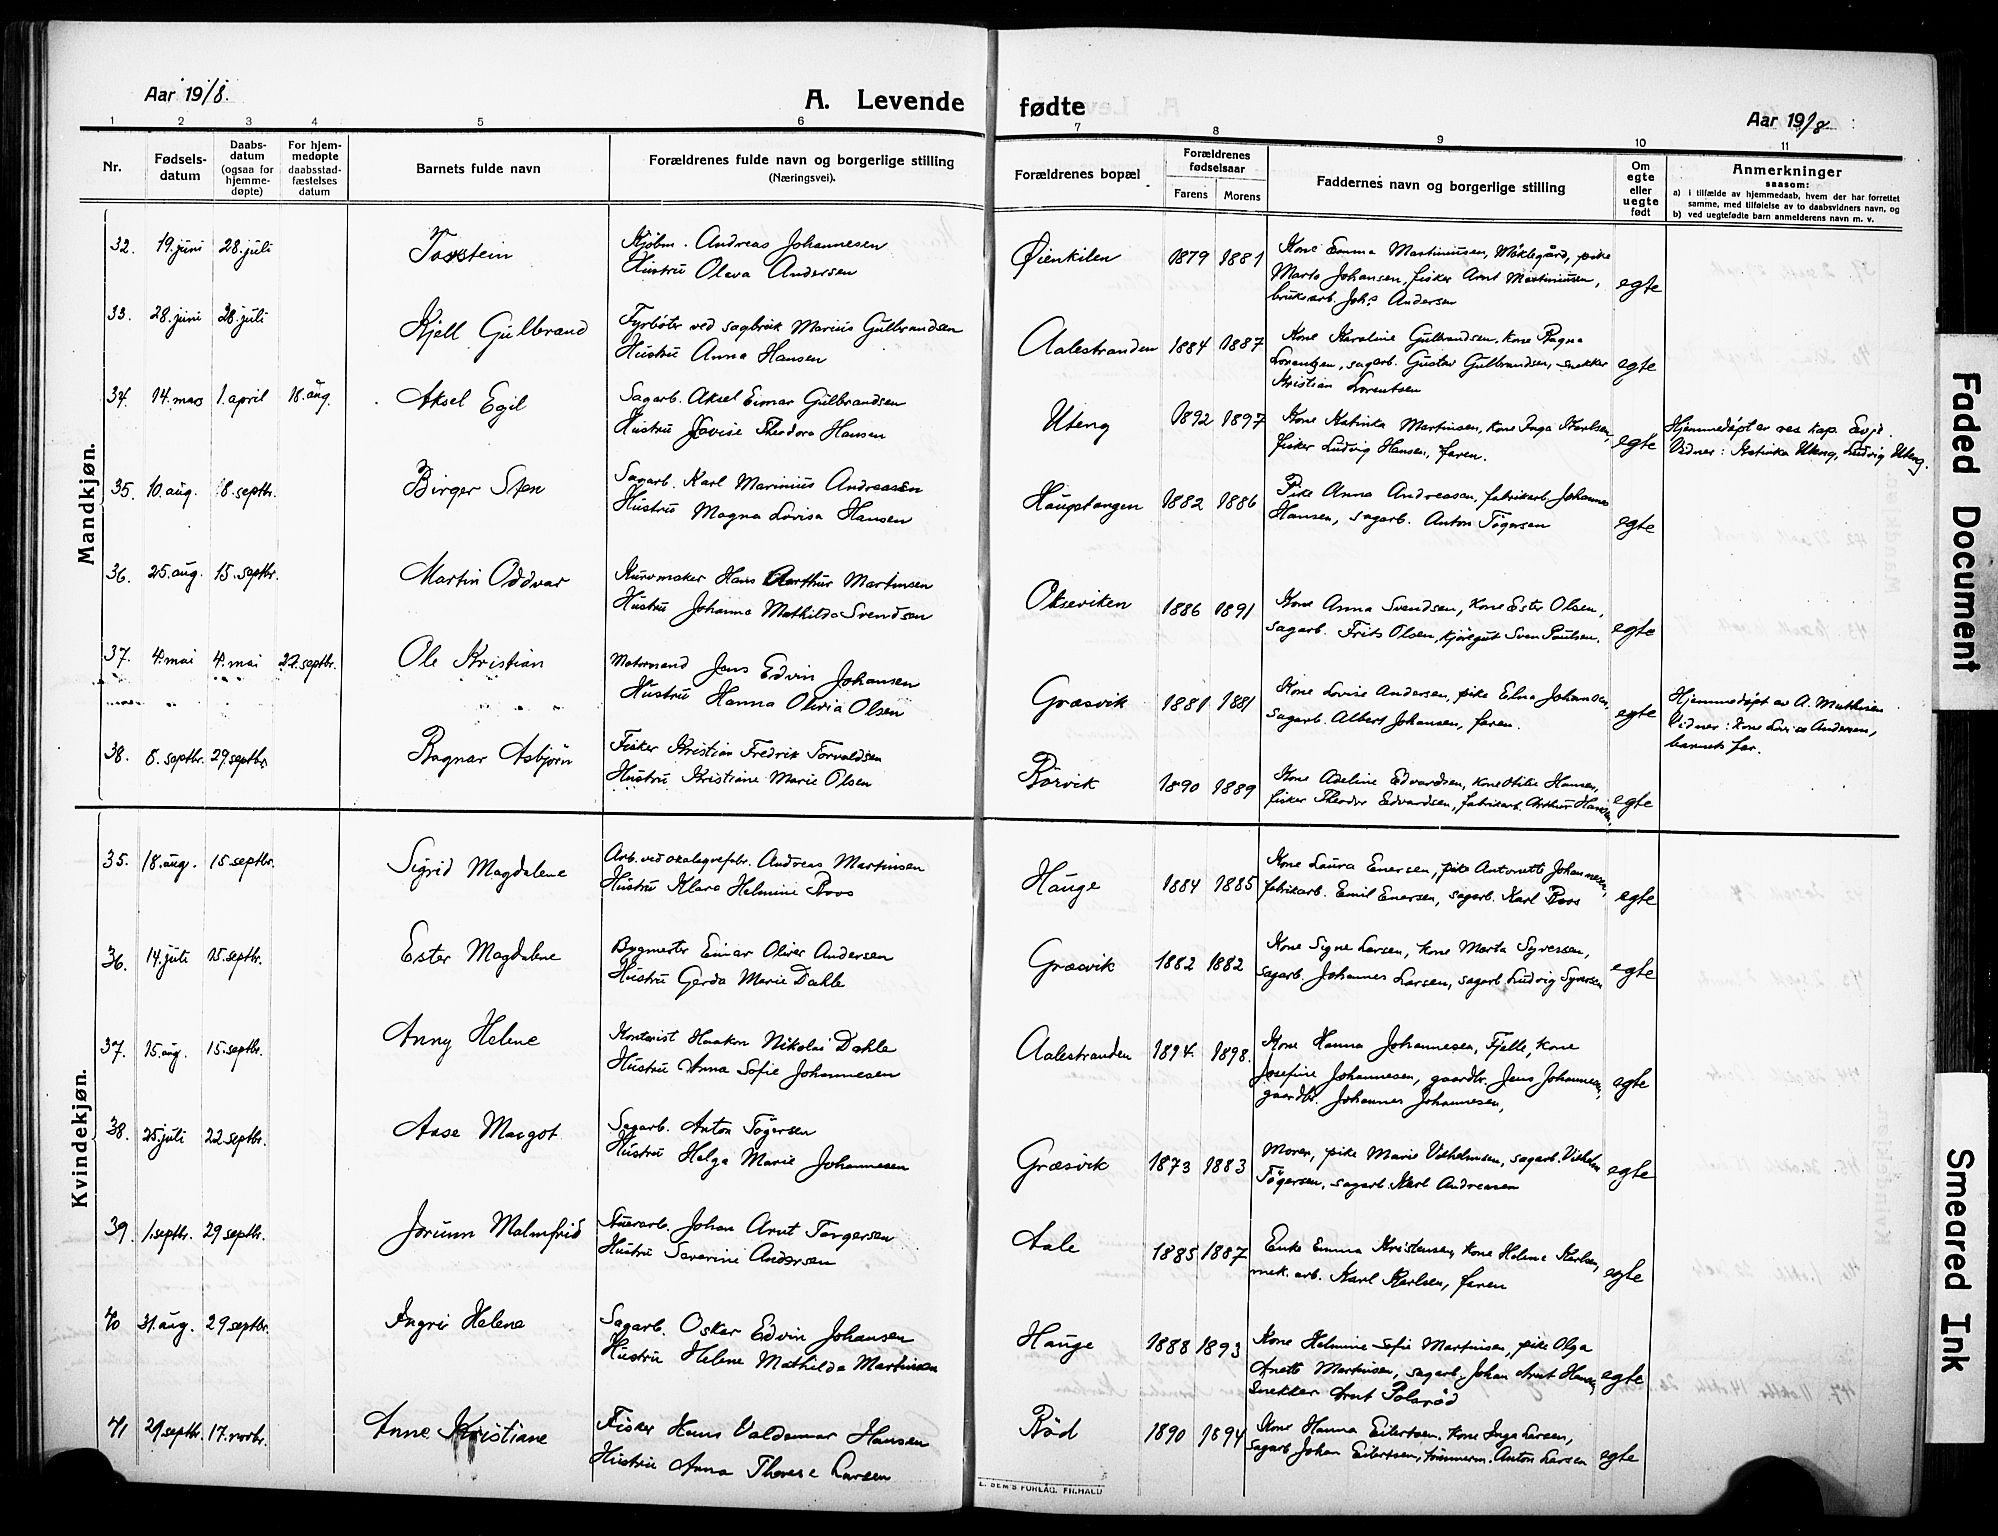 Aar 1918.
A. Levende
fødte
Aar 1918
1 2 3 4 5 6
7 8 9 10 11
Nr.
Fødsels-
datum
Daabs-
datum
(ogsaa for
hjemme-
døpte)
For hjem-
medøpte
daabsstad-
fæstelses
datum
Barnets fulde navn
Forældrenes fulde navn og borgerlige stilling
(Næringsvei).
Forældrenes bopæl
Forældrenes
fødselsaar
Farens Morens
Faddernes navn og borgerlige stilling
Om
egte
eller
uegte
født
Anmerkninger
saasom:
a) i tilfælde av hjemmedaab, hvem der har forrettet
samme, med tilføielse av to daabsvidners navn, og
b) ved uegtefødte barn anmelderens navn m. v.
Mandkjøn.
32. 19. juni 28. juli Torstein
Kjøbm. Andreas Johannesen
Hustru Oleva Andersen
Øienkilen 1879 1881
Kone Emma Martiniusen, Møklegård, pike
Marta Johansen, fisker Arnt Martiniusen,
bruksarb. Johs Andersen
egte
33. 28. juni 28. juli Kjell Gulbrand
Fyrbøter ved sagbruk Marius Gulbrandsen
Hustru Anna Hansen
Aalestranden 1884 1887
Kone Karoline Gulbrandsen, kone Ragna
Lorentzen, sagarb. Gustav Gulbrandsen, snekker
Kristian Lorentsen
egte
34. 14. mars 1. april 18. aug. Aksel Egil
Sagarb. Aksel Einar Gulbrandsen
Hustru Lovise Theodora Hansen
Uteng 1892 1897
Kone Katinka Martinsen, kone Inga Karlsen,
fisker Ludvig Hansen, faren.
egte
Hjemmedøpt av res. kap. Evje.
Vidner: Katinka Uteng, Ludvig Uteng.
35. 10. aug. 8. septbr. Birger Sten
Sagarb. Karl Marinius Andreasen
Hustru Magna Lovisa Hansen
Hauptangen 1882 1886
Pike Anna Andreasen, fabrikarb. Johannes
Hansen, sagarb. Anton Tøgersen
egte
36. 25. aug. 15. septbr. Martin Oddvar
Kurvmaker Hans Arthur Martinsen
Hustru Johanna Mathilda Svendsen
Okseviken 1886 1891
Kone Anna Svendsen, kone Ester Olsen,
sagarb. Frits Olsen, kjøregut Sven Paulsen.
egte
37. 4. mai 4. mai 22. septbr. Ole Kristian
Motormand Jens Edvin Johansen
Hustru Hanna Olivia Olsen
Græsvik 1881 1881
Kone Lovise Andersen, pike Elna Johansen,
sagarb. Albert Johansen, faren.
egte
Hjemmedøpt av A. Mathisen
Vidner: Kone Lovise Andersen,
barnets far.
38. 8. septbr. 29. septbr. Ragnar Asbjørn
Fisker Kristian Fredrik Torvaldsen
Hustru Kristiane Marie Olsen
Rørvik 1890 1889
Kone Adeline Edvardsen, kone Otilie Hansen,
fisker Theodor Edvardsen, fabrikarb. Arthur Hansen,
egte
Kvindekjøn.
35. 18. aug. 15. septbr. Sigrid Magdalene
Arb. ved Andreas Martinsen
Hustru Klara Helmine Roos
Hauge 1884 1885
Kone Laura Enersen, pike Antonette Johannesen,
fabrikarb. Emil Enersen, sagarb. Karl Roos
egte
36. 14. juli 15. septbr. Ester Magdalene
Bygmester Einar Oliver Andersen
Hustru Gerda Marie Dahle
Græsvik 1882 1882
Kone Signe Larsen, kone Marta Syversen,
sagarb. Johannes Larsen, sagarb. Ludvig Syversen
egte
37. 15. aug. 15. septbr. Anny Helene
Kontorist Haakon Nikolai Dahle
Hustru Anna Sofie Johannesen
Aalestranden 1894. 1898.
Kone Hanna Johannesen, Fjelle, kone
Josefine Johannesen, gaardbr. Jens Johannesen,
gaardbr. Johannes Johannesen,
egte
38. 25. juli 22. septbr. Aase Margot
Sagarb. Anton Tøgersen
Hustru Helga Marie Johannesen
Græsvik 1873 1883
Moren, pike Marie Vilhelmsen, sagarb. Vilhelm
Tøgersen, sagarb. Karl Andreasen
egte
39 1. septbr. 29 septbr. Jorunn Malmfrid
Stuerarb. Johan Arnt Torgersen
Hustru Severine Andersen
Aale 1885 1887
Enke Emma Kristensen, kone Helene Karlsen,
mek. arb. Karl Karlsen, faren
egte
40 31. aug. 29 septbr. Ingri Helene
Sagarb. Oskar Edvin Johansen
Hustru Helene Mathilda Martinsen
Hauge 1888 1893
Kone Helmine Sofie Martinsen, pike Olga
Anette Martinsen, sagarb. Johan Arnt Hansen
snekker Arnt Polarød
egte
41 29 septbr. 17. novbr. Anne Kristiane
Fisker Hans Valdemar Hansen
Hustru Anna Therese Larsen
Rød 1890 1894
Kone Hanna Eilertsen, kone Inga Larsen,
sagarb. Johan Eilertsen, tømmerm. Anton Larsen
egte
E. SEM'S FORLAG, FR.HALD
Faded Document
Smeared Ink